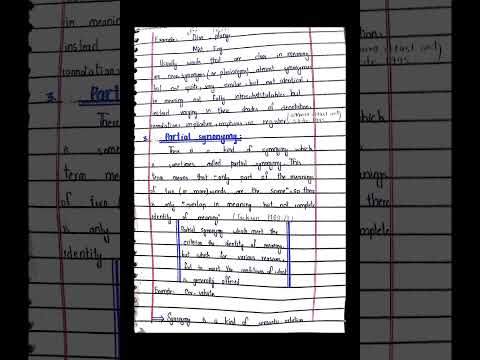 Example: Dive, plunge
Mist, Fog
Usually words that are close in meaning
or near-synonyms (or plesionyms) almost synonymous
but not quite, very similar, but not identical,
in meaning not fully intersubstitutable; but
instead varying in their shades of denotation,
connotation, implicature, emphasis or register
3. Partial synonymy:
There is a kind of synonymy which
is sometimes called partial synonymy. This
term means that "only part of the meanings
of two (or more) words are the same" so there
is only "overlap in meaning but not complete
identity of meaning" (Jackson 1988:67)
Partial synonymy which meet the
criterion the identity of meaning,
but which for various reasons,
fail to meet the conditions of what
is generally offered
Example: Car, vehicle
⇒ Synonymy is a kind of semantic relation